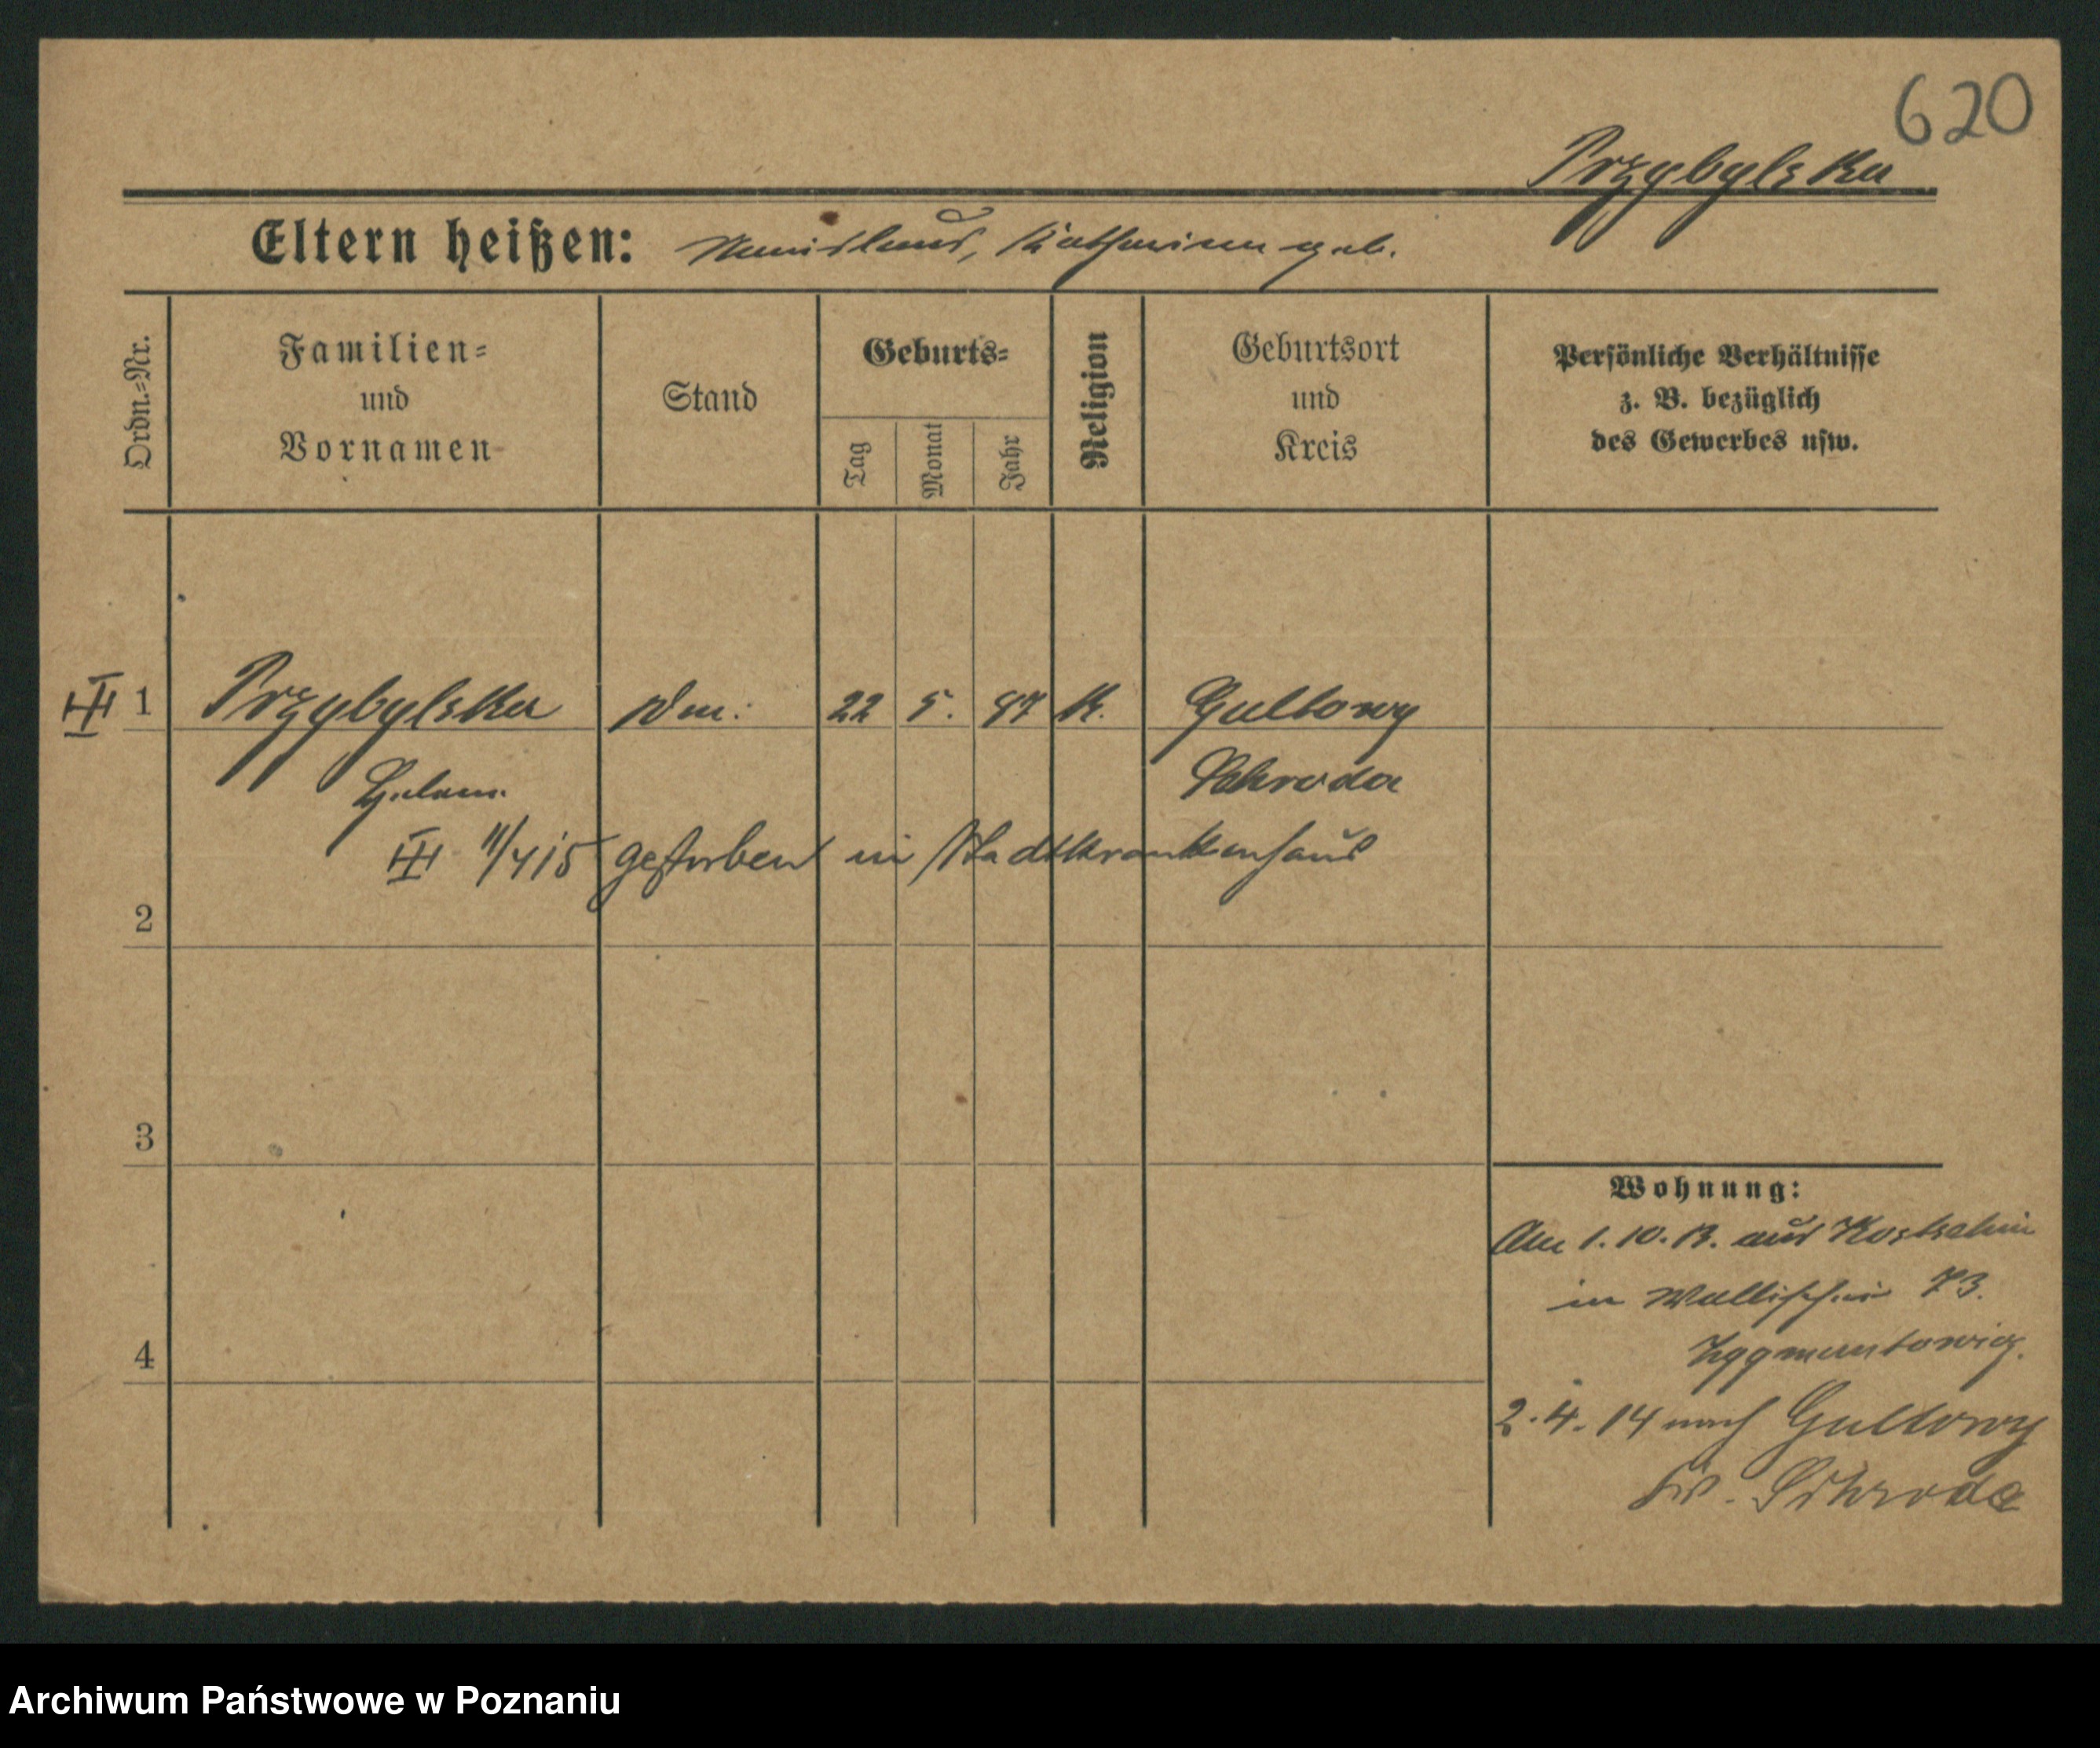 620
Przybylska
Eltern heißen: Stanislaus, Katharina geb.
Ordn.=Nr.
Familien=
und
Vornamen
Stand
Geburts=
Tag
Monat
Jahr
Religion
Geburtsort
und
Kreis
Persönliche Verhältnisse
z. B. bezüglich
des Gewerbes usw.
III 1 Przybylska 22 5. 87 K. Gultowy
Helene Schroda
III 11/4 15 gestorben in Stadtkrankenhaus
2
3
4
Wohnung:
Am 1. 10. 13. aus Kostschin
in Wallischei 73.
2. 4. 14 nach Gultowy
Schroda
Archiwum Państwowe w Poznaniu